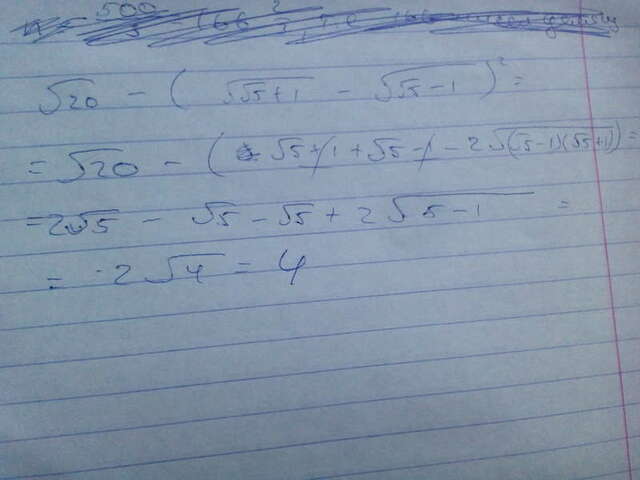 500
√20 - (√√5+1 - √√5-1)² =
= √20 - (√5+1+√5-1-2√(√5-1)(√5+1)) =
= 2√5 - √5 - √5 + 2√5-1 =
= 2√4 = 4